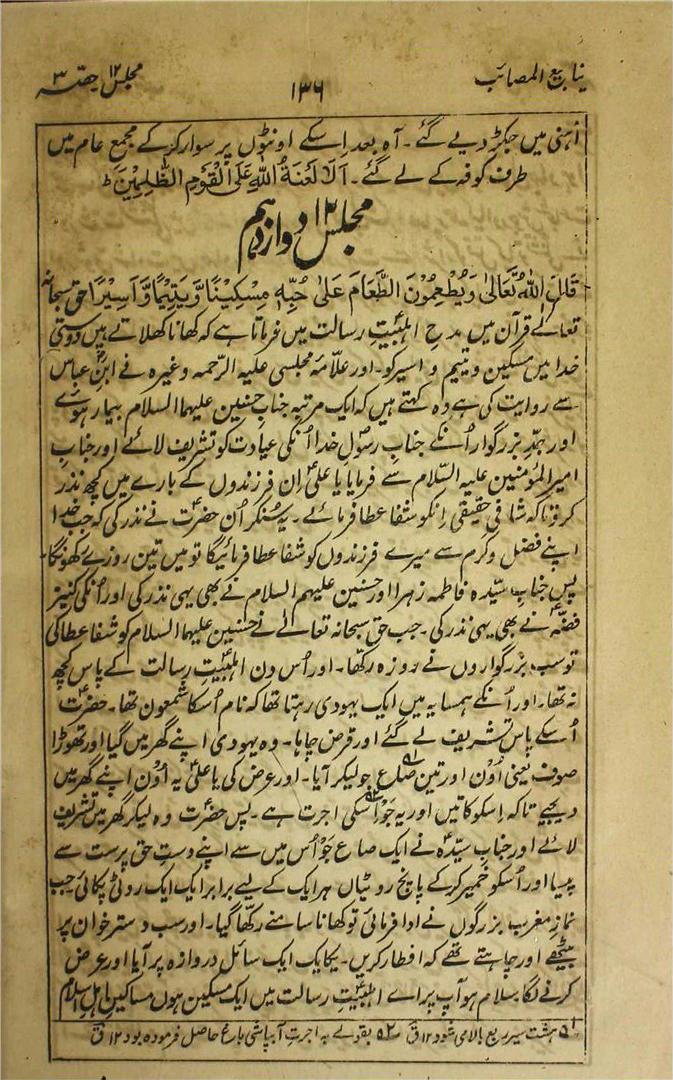 ینابیع المصائب
۱۳۶
مجلس ۱۲ حصہ ۳
آہنی میں جکڑ دیے گئے۔ آہ بعد اسکے اونٹوں پر سوار کرکے مجمع عام میں
طرف کوفہ کے لے گئے۔ اَلَا لَعْنَةُ اللّٰهِ عَلَى الْقَوْمِ الظّٰلِمِيْنَ ط
مجلس ۱۲ دوازدہم
قَالَ اللّٰهُ تَعَالٰى وَيُطْعِمُوْنَ الطَّعَامَ عَلٰى حُبِّهٖ مِسْكِيْنًا وَّيَتِيْمًا وَّاَسِيْرًا حق سبحانہ
تعالےٰ قرآن میں مدح اہلبیتِ رسالت میں فرماتا ہے کہ کھانا کھلاتے ہیں دوستی
خدا میں مسکین و یتیم و اسیر کو۔ اور علّامہ مجلسی علیہ الرّحمہ وغیرہ نے ابنِ عباس
سے روایت کی ہے وہ کہتے ہیں کہ ایک مرتبہ جناب حسنین علیہما السلام بیمار ہوئے
اور جدِّ بزرگوار اُنکے جناب رسولِ خدا اُنکی عیادت کو تشریف لائے اور جنابِ
امیر المؤمنین علیہ السّلام سے فرمایا یا علیؑ ان فرزندوں کے بارے میں کچھ نذر
کرو تاکہ شافیِ حقیقی انکو شفا عطا فرمائے۔ یہ سُنکر اُن حضرتؑ نے نذر کی کہ جب خدا
اپنے فضل و کرم سے میرے فرزندوں کو شفا عطا فرمائیگا تو میں تین روزے رکھونگا
پس جناب سیّدہ فاطمہ زہرا اور حسنین علیہم السلام نے بھی یہی نذر کی اور اُنکی کنیز
فضّہؑ نے بھی یہی نذر کی۔ جب حق سبحانہ تعالےٰ نے حسنین علیہما السلام کو شفا عطا کی
تو سب بزرگواروں نے روزہ رکھا۔ اور اُس دن اہلبیتِ رسالت کے پاس کچھ
نہ تھا۔ اور اُنکے ہمسایہ میں ایک یہودی رہتا تھا کہ نام اُسکا شمعون تھا۔ حضرتؑ
اُسکے پاس تشریف لے گئے اور قرض چاہا۔ وہ یہودی اپنے گھر میں گیا اور تھوڑا
صوف یعنی اُون اور تین صاع۱ جو لیکر آیا۔ اور عرض کی یا علیؑ یہ اُون اپنے گھر میں
دیجیے تاکہ اسکو کاتیں اور یہ جَو اُسکی۲ اجرت ہے۔ پس حضرت وہ لیکر گھر میں تشریف
لائے اور جناب سیّدہؑ نے ایک صاع جَو اُس میں سے اپنے دستِ حق پرست سے
پیسا اور اُسکو خمیر کرکے پانچ روٹیاں ہر ایک کے لیے برابر ایک ایک روٹی پکائی جب
نمازِ مغرب بزرگوں نے ادا فرمائی تو کھانا سامنے رکھا گیا۔ اور سب دسترخوان پر
بیٹھے اور چاہتے تھے کہ افطار کریں۔ یکایک ایک سائل دروازہ پر آیا اور عرض
کرنے لگا سلام ہو آپ پر اے اہلبیتِ رسالت میں ایک مسکین ہوں مساکینِ اہلِ اسلام
۱ ہشت سیر ربع بالا می شود ۱۲ ق ۲ بقدرے بہ اجرتِ آبپاشی باغ حاصل فرمودہ بود ۱۲ ق